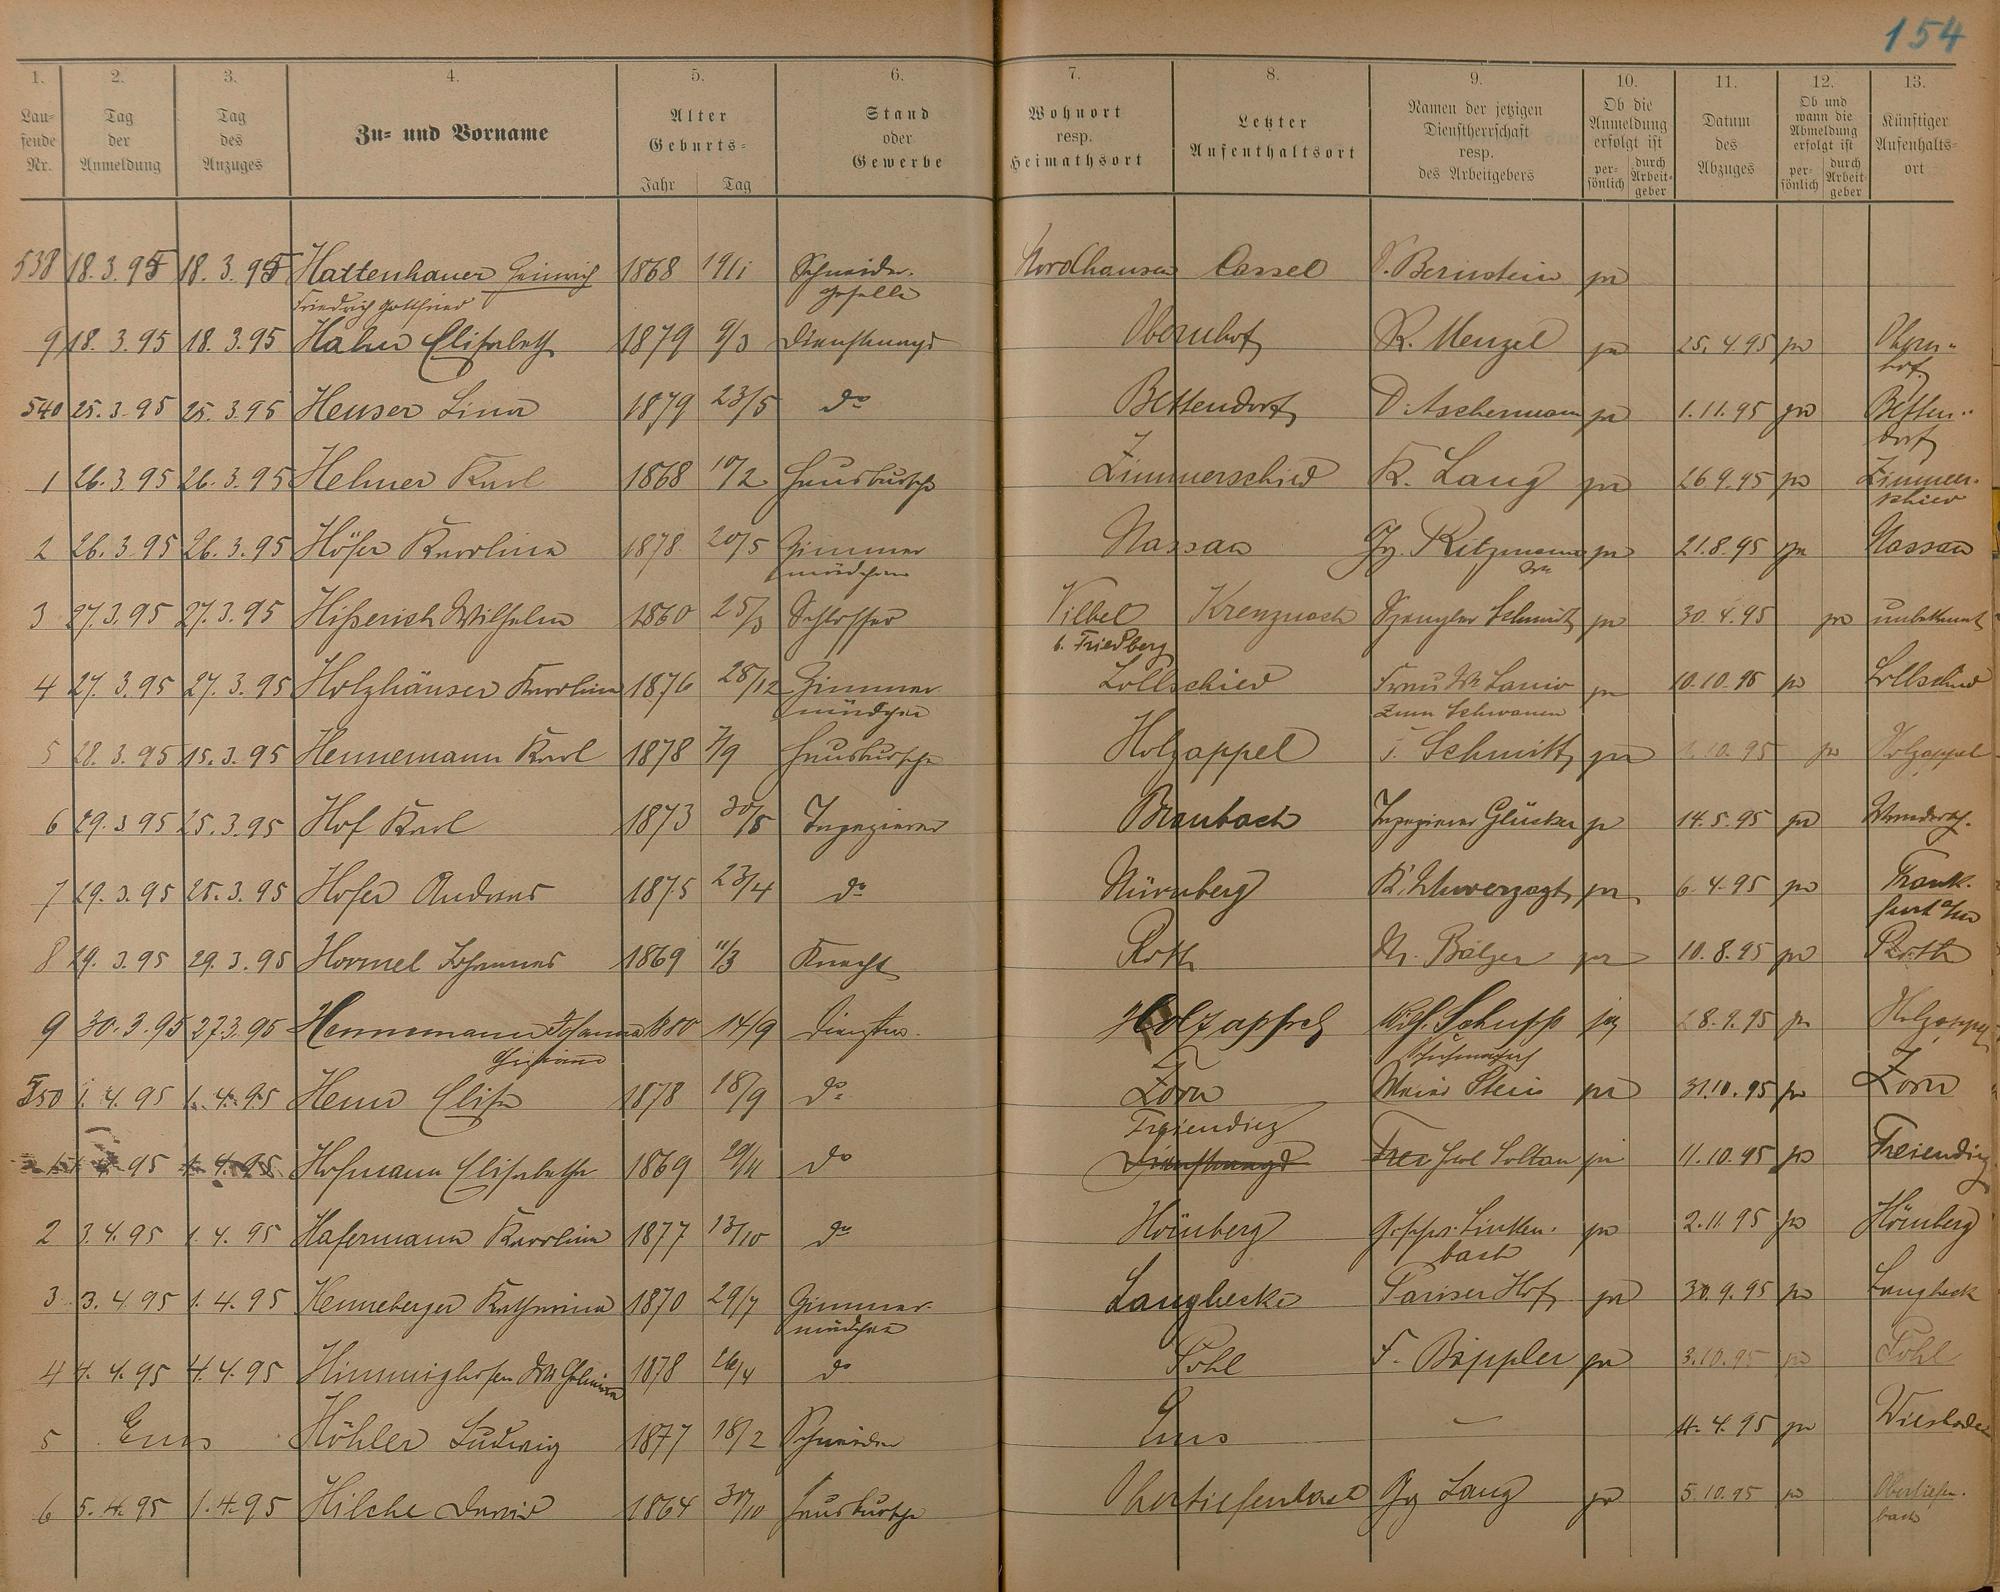 154
1. 2. 3. 4. 5. 6. 7. 8. 9. 10. 11. 12. 13.
Laufende Nr. Tag der Anmeldung Tag des Anzuges Zu- und Vorname Alter Geburts- Jahr Tag Stand oder Gewerbe Wohnort resp. Heimathsort Letzter Aufenthaltsort Namen der jetzigen Dienstherrschaft resp. des Arbeitgebers Ob die Anmeldung erfolgt ist persönlich durch Arbeitgeber Datum des Abzuges Ob und wann die Abmeldung erfolgt ist persönlich durch Arbeitgeber Künftiger Aufenthaltsort
538 18. 3. 95 18. 3. 95 Hattenhauer Heinrich 1868 19/1 Schneider- Nordhausen Cassel Bernstein
Friedrich Gottfried geselle
9 18. 3. 95 18. 3. 95 Hahn Elisabeth 1879 9/3 Dienstmagd Obernhof R. Menzel 25. 4. 95 Obern-
hof
540 25. 3. 95 25. 3. 95 Heuser Lina 1879 23/5 do Bettendorf D. Aschermann 1. 11. 95 Betten-
dorf
1 26. 3. 95 26. 3. 95 Helmer Karl 1868 10/2 Hausbursche Zimmerschied K. Lang 26 9. 95 Zimmer-
schied
2 26. 3. 95 26. 3. 95 Höfer Karolina 1878 20/5 Zimmer Nassau Gg. Ritzmann 21. 8. 95 Nassau
mädchen
3 27. 3. 95 27. 3. 95 Hißerich Wilhelm 1860 25/3 Schlosser Vilbel Kreuznach Spengler Schmidt 30. 4. 95 unbekannt
b. Friedberg
4 27. 3. 95 27. 3. 95 Holzhäuser Karolina 1876 28/12 Zimmer Lollschied Frau 10. 10. 95 Lollschied
mädchen Zum Schwanen
5 28. 3. 95 15. 3. 95 Hennemann Karl 1878 7/9 Hausbursche Holzappel Schmitt 1. 10. 95 Holzappel
6 29. 3 95 25. 3. 95 Hof Karl 1873 30/5 Tapezierer Braubach Tapezierer Glücker 14. 5. 95
7 29. 3. 95 25. 3. 95 Hofer Andreas 1875 23/4 do Nürnberg K. Unverzagt 6 4. 95 Frank-
furt a/m
8 29. 3. 95 29. 3. 95 Hormel Johannes 1869 11/3 Knecht Roth Balzer 10. 8. 95 Roth
9 30. 3. 95 27. 3. 95 Hennemann Johanna 14/9 Dienstm. Holzappel Wilh. Schupp 28. 9. 95 Holzappel
Christiane Schuhmacher
550 1. 4. 95 1. 4. 95 Henn Elise 1878 18/9 do Zorn Stein 31. 10. 95 Zorn
Freiendiez
1. 4. 95 1. 4. 95 Hofmann Elisabethe 1869 do Dienstmagd Soltau 11. 10. 95 Freiendiez
2 3. 4. 95 1. 4. 95 Hafermann Karolina 1877 13/10 do Hömberg Linken- 2. 11. 95 Hömberg
bach
3 3. 4. 95 1. 4. 95 Henneberger Katharina 1870 29/7 Zimmer- Langhecke Pariser Hof 30. 9. 95 Langheck
mädchen
4 4. 4. 95 4. 4. 95 Himmighofen Wilhelmina 1878 26/4 do Pohl F. Bippler 3. 10. 95 Pohl
5 Ems Höhler Ludwig 1877 18/2 Schneider Ems — 4. 4. 95 Wiesbaden
6 5. 4. 95 1. 4. 95 Hilche David 1864 30/10 Hausbursche Obertiefenbach Gg Lang 5. 10. 95 Obertiefen-
bach